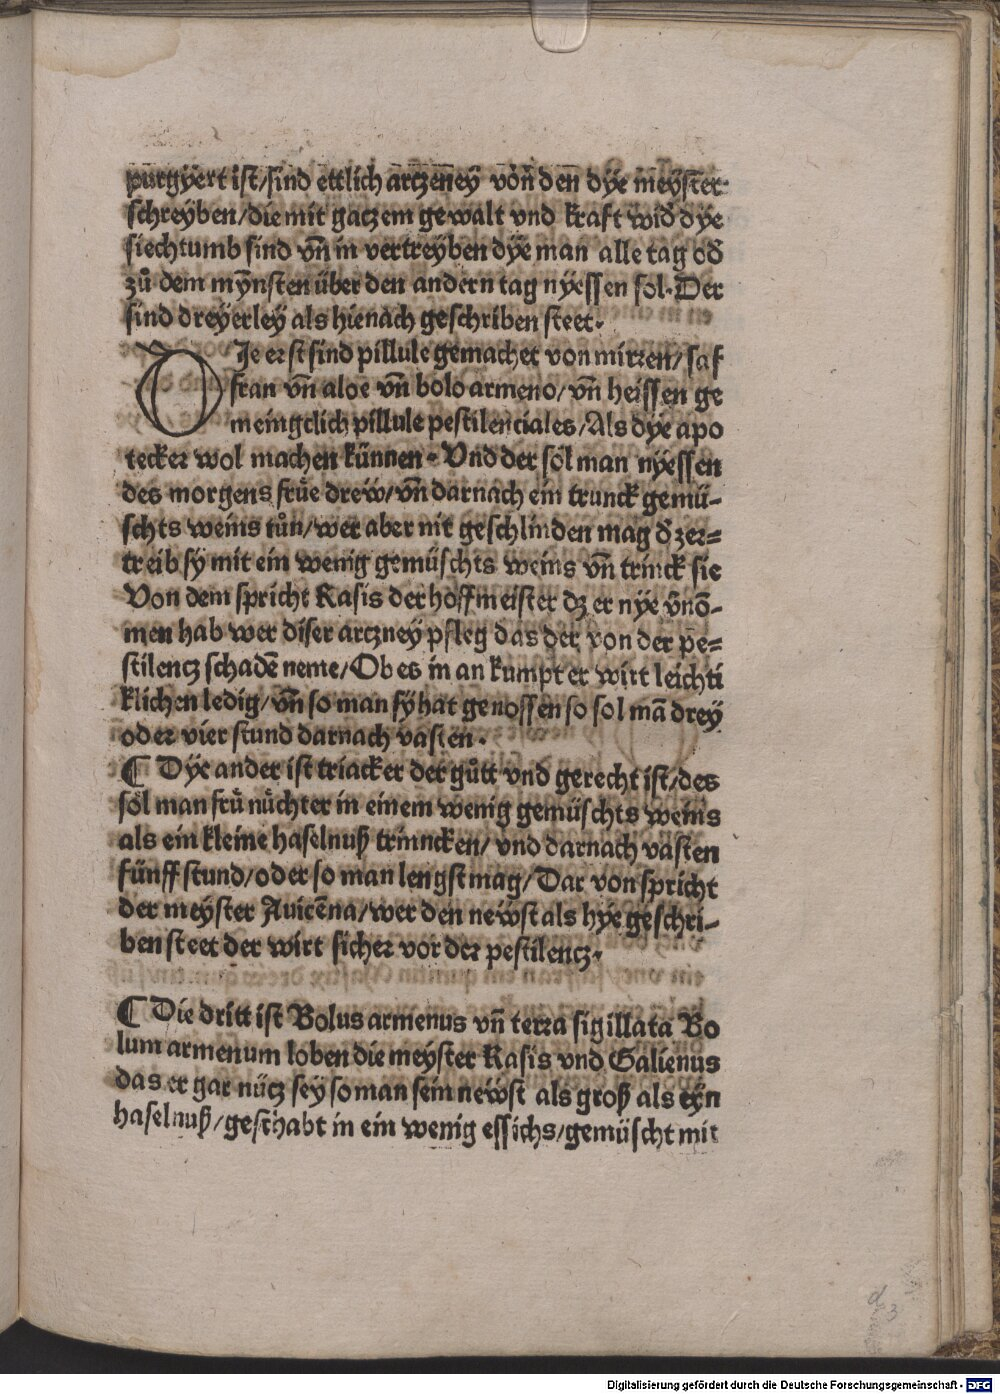 purgyert ist/sind ettlich arczeney vöñ den dye meyster
schreyben/die mit gaczem gewalt vnd kraft wid̃ dye
siechtumb sind vñ in vertreyben dye man alle tag od̃
zů dem mÿnsten über den andern tag nyessen sol. Der
sind dreyerley als hienach geschriben steet.
DIe erst sind pillule gemachet von mirren/ saf
fran vñ aloe vñ bolo armeno/ vñ heissen ge
meingclich pillule pestilenciales/Als dye apo
tecker wol machen künnen. Vnd der söl man nyessen
des morgens früe drew/vñ darnach ein trunck gemü-
schts weins tůn/wer aber nit geschlinden mag d̃ zer-
treib sy mit ein wenig gemüschts weins vñ trinck sie
Von dem spricht Rasis der hoffmeister dz er nye v̄nō-
men hab wer diser arczney pfleg das der von der pe-
stilencz schadē neme/Ob es in an kumpt er wirt leichti
klichen ledig/vñ so man sy hat genossen so sol mā drey
oder vier stund darnach vasten.
¶ Dye ander ist triacker der gůtt vnd gerecht ist/des
söl man frü nüchter in einem wenig gemüschts weins
als ein kleine haselnuß trinncken/ vnd darnach vasten
fünff stund/oder so man lengst mag/Dar von spricht
der meyster Auicēna/wer den newst als hye geschri-
ben steet der wirt sicher vor der pestilencz.
¶ Die dritt ist Bolus armenus vñ terra sigillata Bo
lum armenum loben die meyster Rasis vnd Galienus
das er gar nücz sey so man sein newst als groß als eyn
haselnuß/geschabt in ein wenig essichs/gemüscht mit
d 3
Digitalisierung gefördert durch die Deutsche Forschungsgemeinschaft - DFG